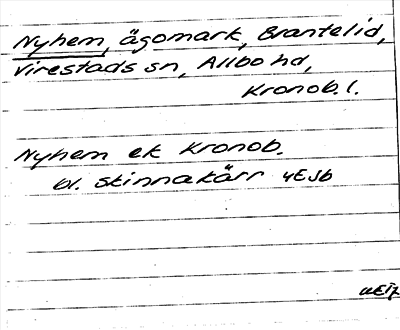 Nyhem, ägomark, Brantelid,
Virestads sn, Allbo hd,
Kronob. l.
Nyhem ek Kronob.
bl. Skinnakärr 4E5b